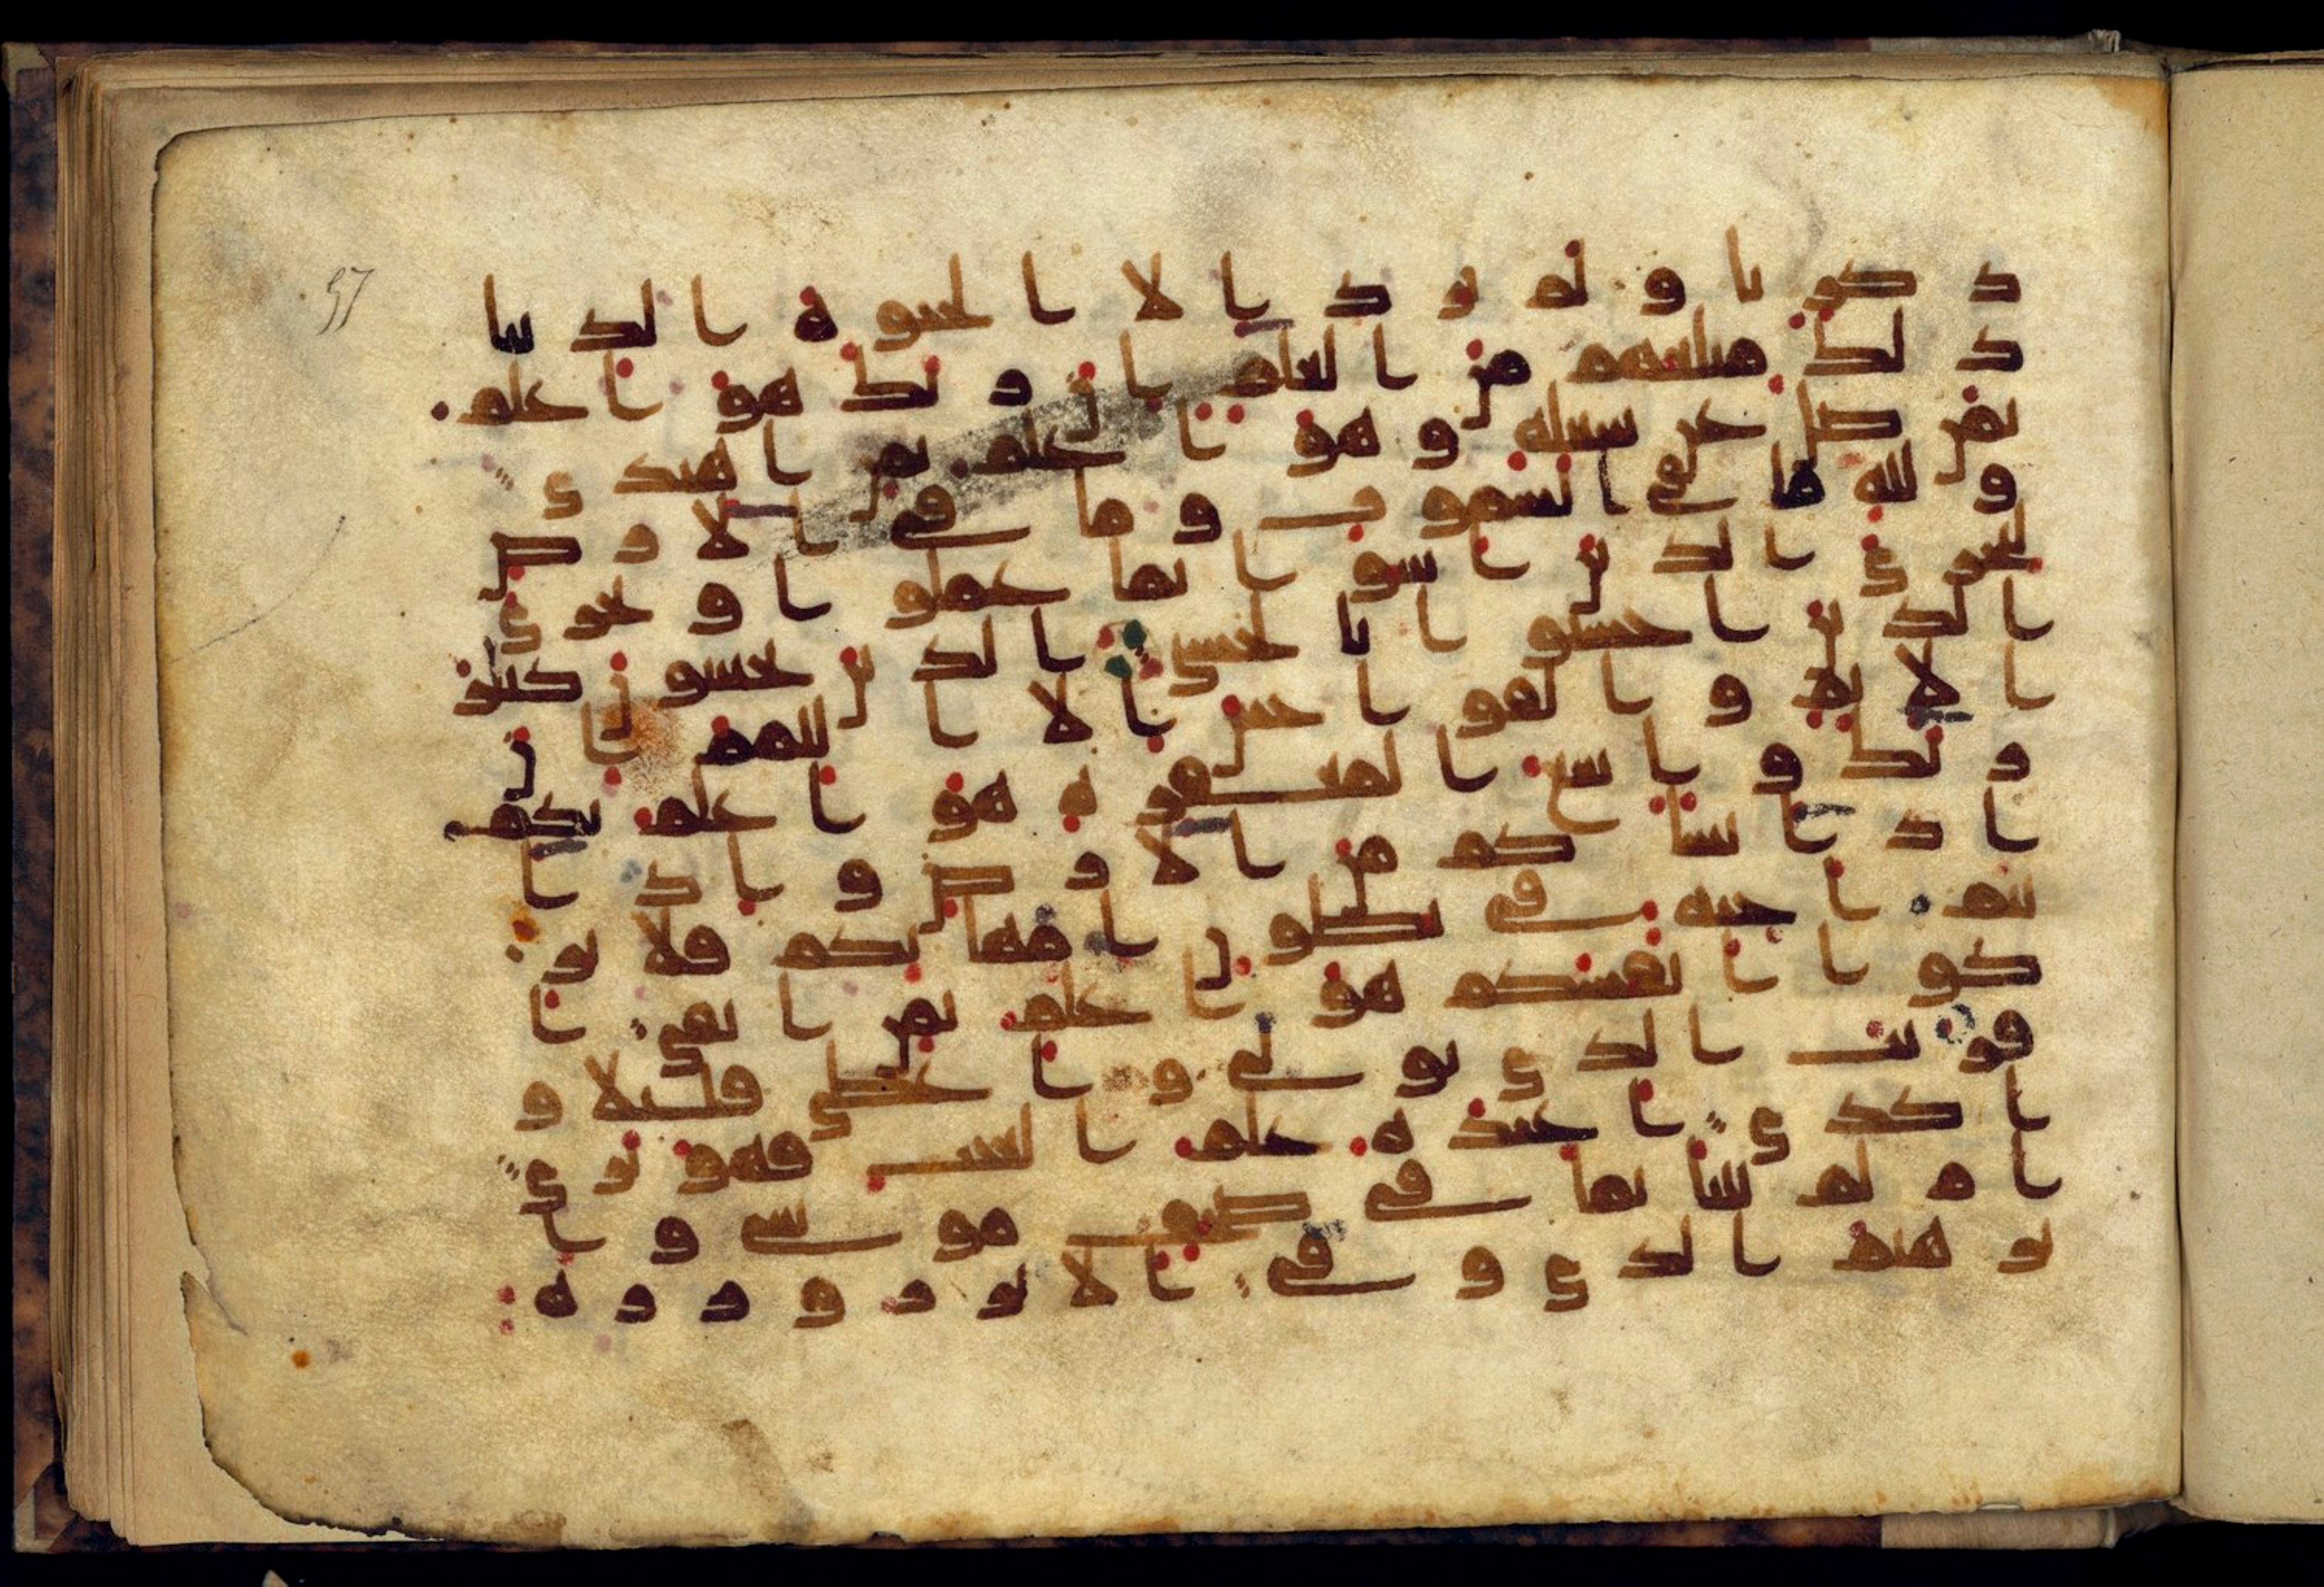 57
ذكرنا ولم يرد الا الحيوة الدنيا
ذلك مبلغهم من العلم ان ربك هو اعلم
بمن ضل عن سبيله وهو اعلم بمن اهتدى
ولله ما في السموت وما في الارض
ليجزى الذين اسوا بما عملوا ويجزى
الذين احسنوا بالحسنى الذين يجتنبون كبير
الاثم والفوحش الا اللمم ان
ربك وسع المغفرة هو اعلم بكم
اذ انشاكم من الارض واذ ا
نتم اجنة في بطون امهتكم فلا تز
كوا انفسكم هو اعلم بمن اتقى ا
فريت الذي تولى واعطى قليلا و
اكدى اعنده علم الغيب فهو يرى
ام لم ينبا بما في صحف موسى وا
برهيم الذي وفى الا تزر وزرة